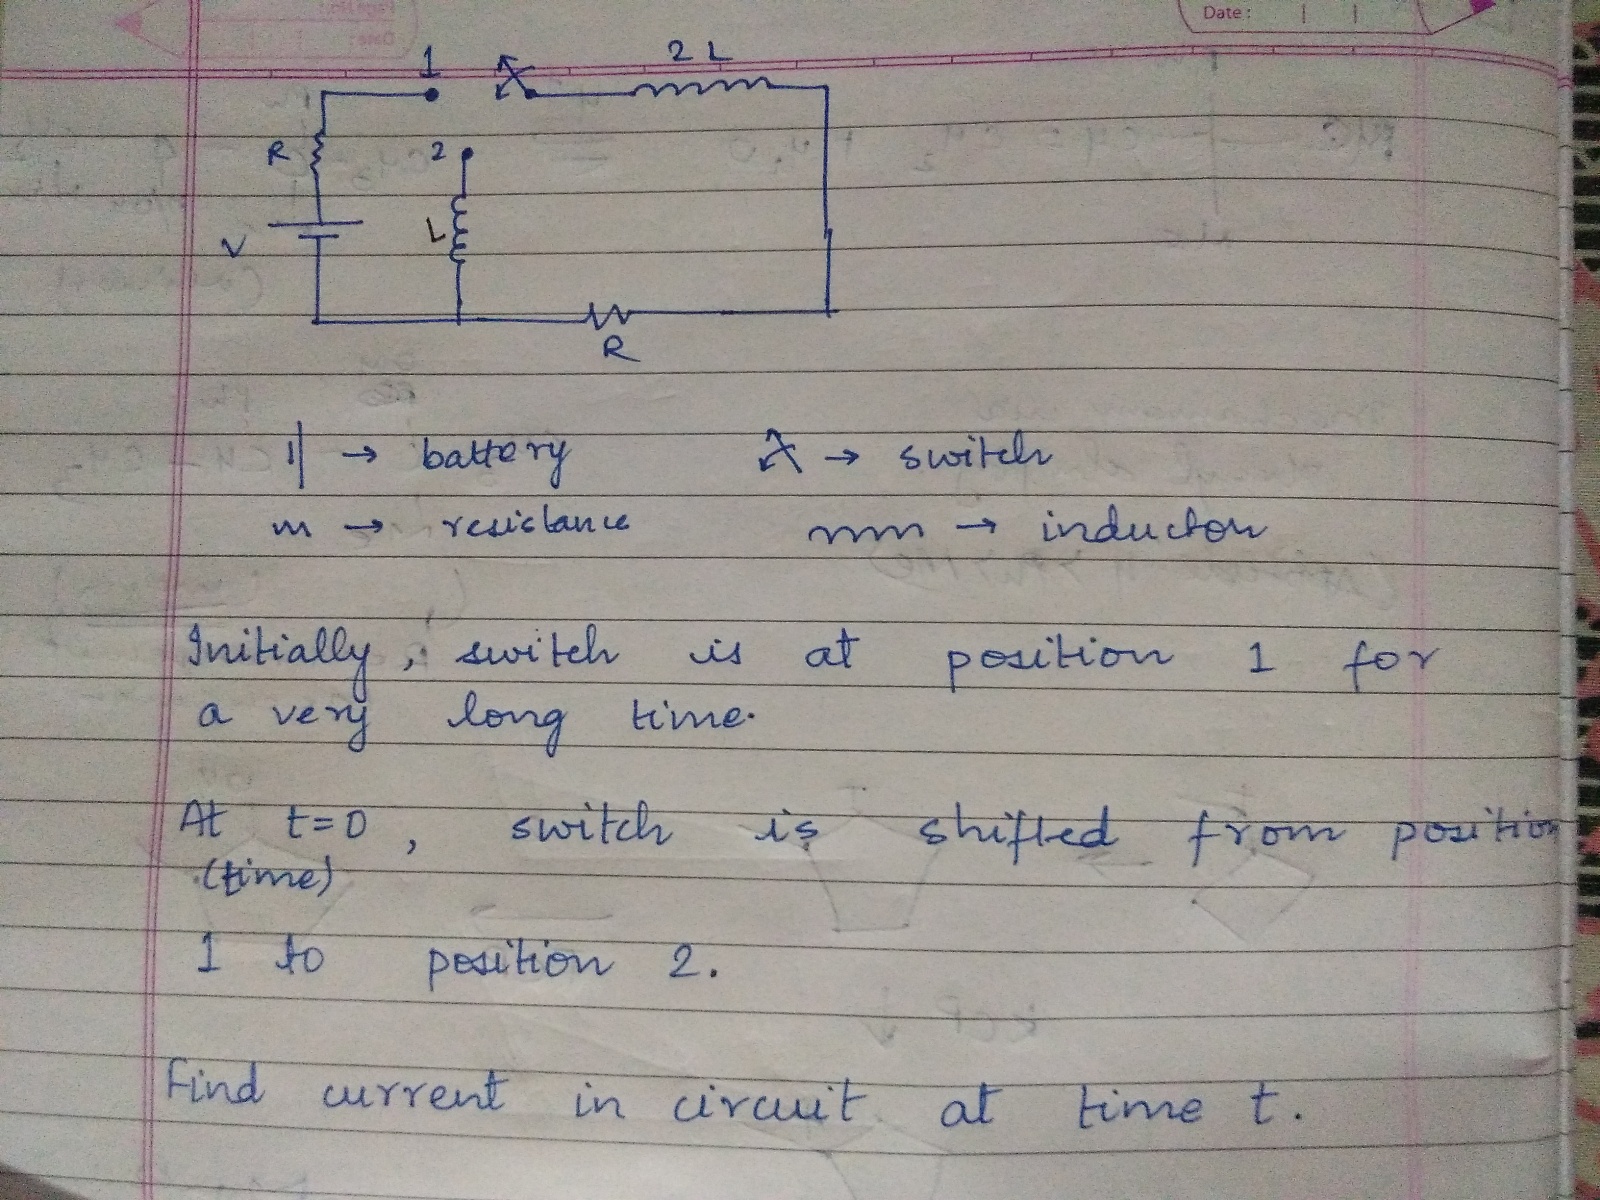 Date:
1
2 L
R
2
V
L
R
→ battery
→ switch
→ resistance
→ inductor
Initially, switch is at position 1 for
a very long time.
At t=0, switch is shifted from position
(time)
1 to position 2.
Find current in circuit at time t.